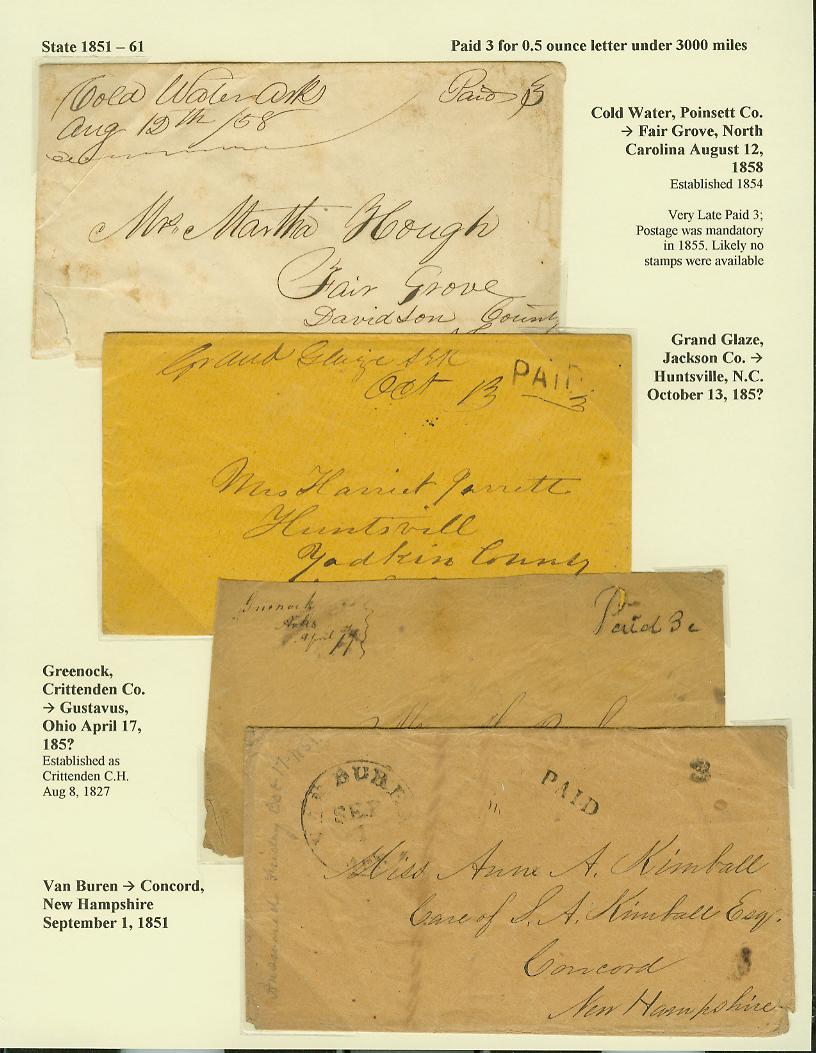 State 1851 – 61
Paid 3 for 0.5 ounce letter under 3000 miles
Cold Water Arks
Aug 12th /58
Paid 3
Mrs Martha Hough
Fair Grove
Davidson County
Cold Water, Poinsett Co.
→ Fair Grove, North
Carolina August 12,
1858
Established 1854
Very Late Paid 3;
Postage was mandatory
in 1855. Likely no
stamps were available
Grand Glaize Ark
Oct 13
PAID
3
Mrs Harriet Jarrett
Huntsvill
Yadkin County
Grand Glaze,
Jackson Co. →
Huntsville, N.C.
October 13, 185?
Greenock
Arks
April 17
Paid 3c
Greenock,
Crittenden Co.
→ Gustavus,
Ohio April 17,
185?
Established as
Crittenden C.H.
Aug 8, 1827
VAN BUREN
SEP
1
PAID
3
Miss Anne A. Kimball
Care of S. A. Kimball Esq.
Concord
New Hampshire
Van Buren → Concord,
New Hampshire
September 1, 1851